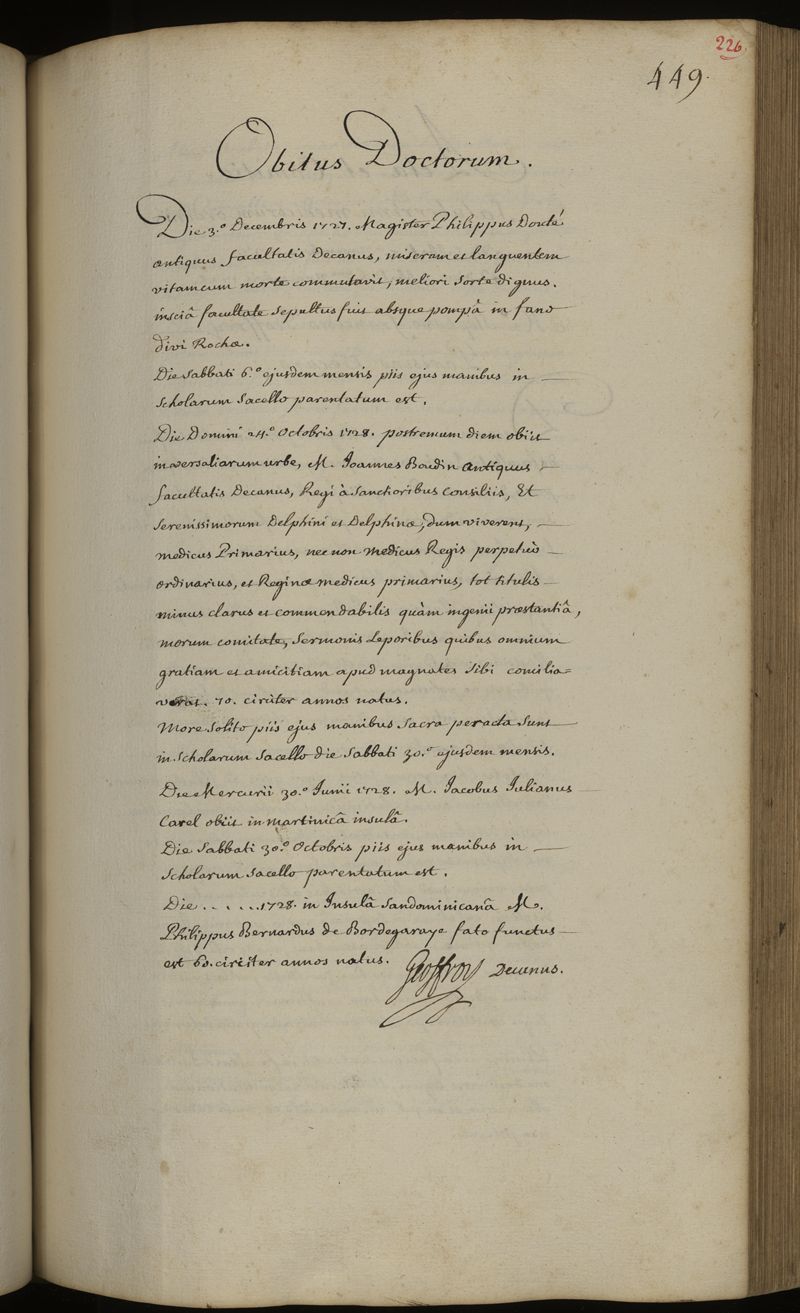 226.
449.
Obitus Doctorum.
Die 3.º Decembris 1727. Magister Philippus Douté
antiquus facultatis Decanus, miseram et languentem
vitam cum morte commutavit, meliori sorte dignus.
insciâ facultate sepultus fuit absque pompâ in fano
divi Rochæ.
Die Sabbati 6.º ejusdem mensis piis ejus manibus in
Scholarum Sacello parentatum est.
Die Domini 24.º Octobris 1728. postremum diem obiit
in versaliarum urbe, M. Joannes Boudin Antiquus
facultatis Decanus, Regi à Sanctioribus Consiliis, Et
Serenissimorum Delphini et Delphinæ, dum viverent,
medicus Primarius, nec non medicus Regis perpetuò
ordinarius, et Reginæ medicus primarius, tot titulis
minus clarus et commendabilis quàm ingenii præstantiâ,
morum comitate, Sermonis Leporibus quibus omnium
gratiam et amicitiam apud magnates sibi concilia=
verat. 70. circiter annos natus.
More Solito piis ejus manibus Sacra peracta Sunt
in Scholarum Sacello die Sabbati 30.º ejusdem mensis.
Die Mercurii 30.º Junii 1728. M. Jacobus Julianus
Carel obiit in martinicâ insulâ.
Die Sabbati 30.º Octobris piis ejus manibus in
Scholarum Sacello parentatum est.
Die . . . . . 1728. in Insulâ Sandominicanâ M.
Philippus Bernardus de Bordegaraye fato functus
est 60. circiter annos natus. Geoffroy Decanus.